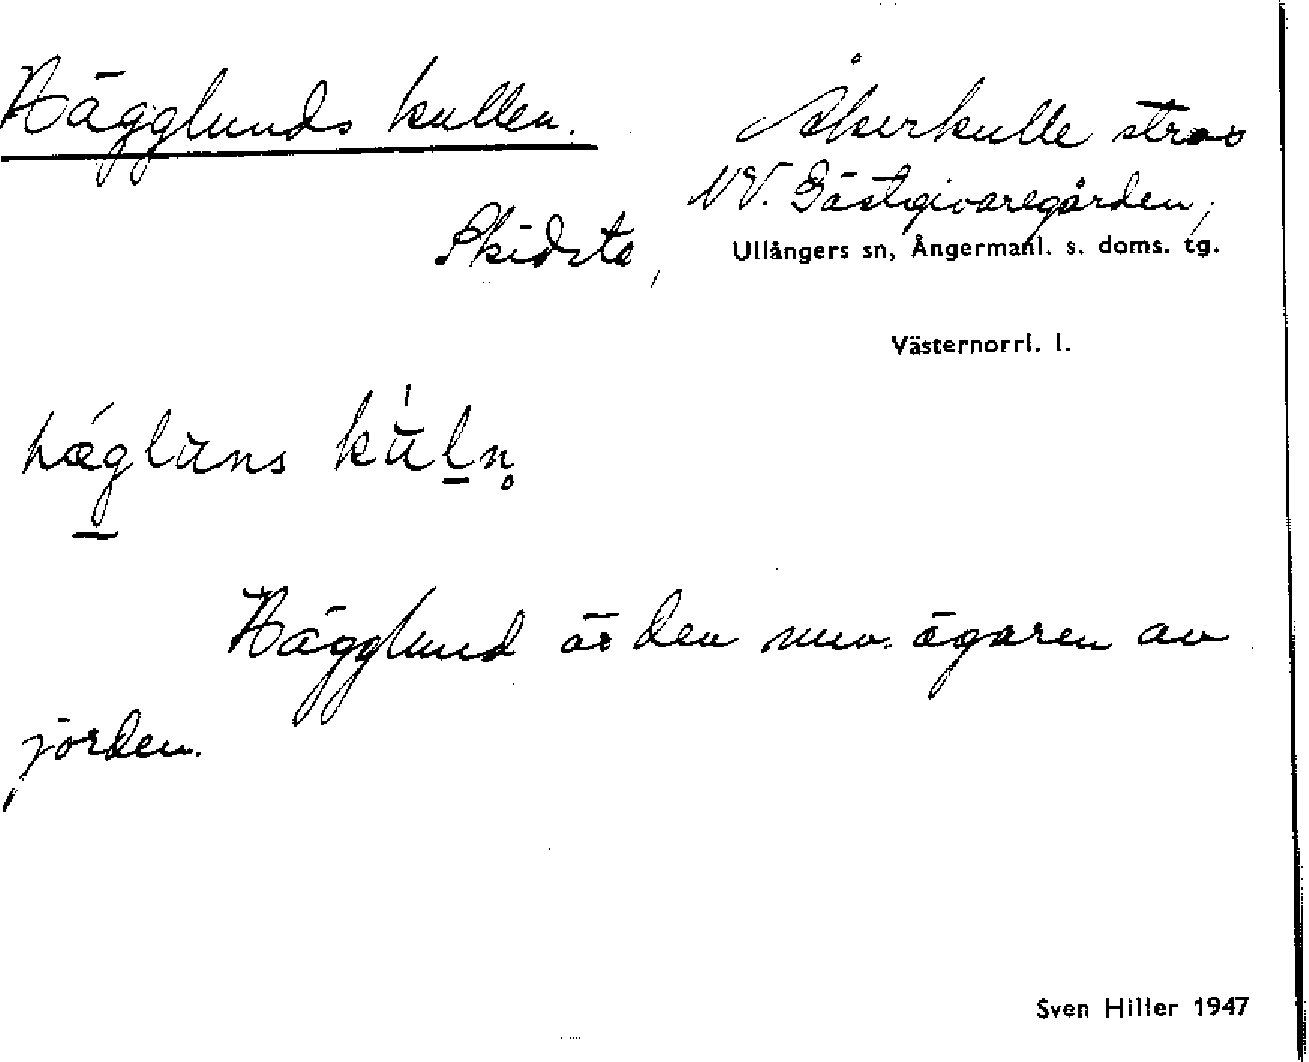 Hägglunds kullen.
Åkerkulle strax
NV. Gästgivaregården,
Skidsta,
Ullångers sn, Ångermanl. s. doms. tg.
Västernorrl. l.
hǽglŭns kŭ̀ln̥
Hägglund är den nuv. ägaren av
jorden.
Sven Hiller 1947